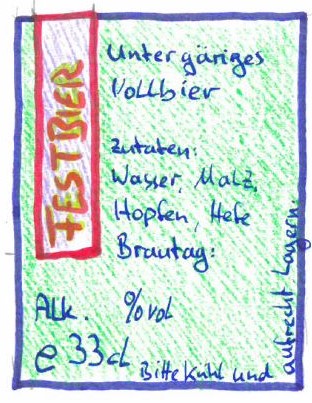 FESTBIER
Untergäriges
Vollbier
Zutaten:
Wasser, Malz,
Hopfen, Hefe
Brautag:
Alk. %vol
e 33cl
Bitte Kühl und
aufrecht Lagern.